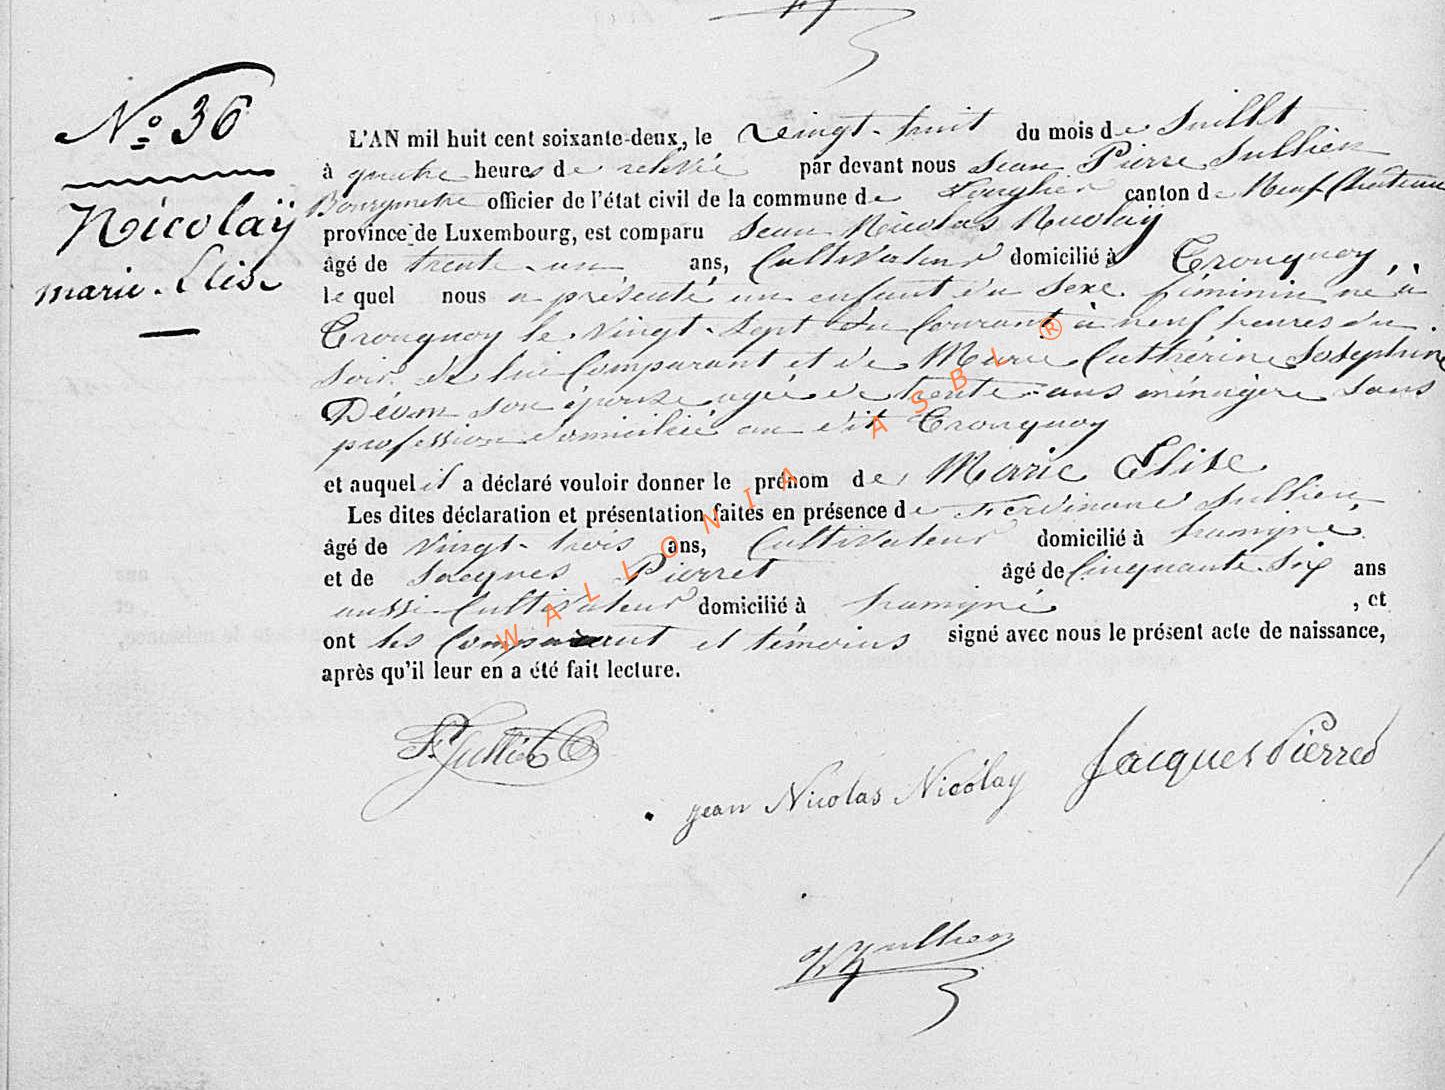 N° 36
Nicolaÿ
marie-Elise
L'AN mil huit cent soixante-deux, le vingt-huit du mois de Juillet
à quatre heures de relevée par devant nous Jean Pierre Jullien
Bourgmestre officier de l'état civil de la commune de Longlier canton de Neufchateau
province de Luxembourg, est comparu Jean Nicolas Nicolaÿ
âgé de trente-un ans, Cultivateur domicilié à Tronquoy
le quel nous a présenté un enfant du sexe féminin né à
Tronquoy le vingt-sept du courant à neuf heures du
soir de lui Comparant et de Marie Catherine Josephine
Déom son épouse agée de trente ans ménagère sans
profession domiciliée au dit Tronquoy
et auquel il a déclaré vouloir donner le prénom de Marie Elise
Les dites déclaration et présentation faites en présence de Ferdinand Jullien
âgé de vingt-trois ans, Cultivateur domicilié à hamipré
et de Jacques Pierret âgé de Cinquante-Six ans
aussi Cultivateur domicilié à hamipré , et
ont les Comparant et témoins signé avec nous le présent acte de naissance,
après qu'il leur en a été fait lecture.
F. Jullien
Jean Nicolas Nicolay
Jacques Pierret
Jullien
WALLONIA ASBL ®